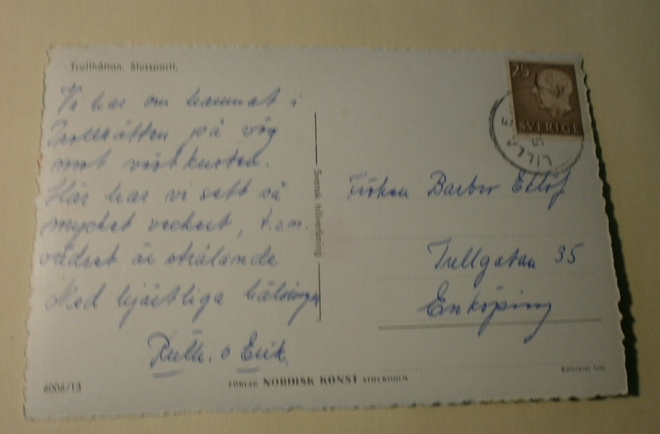 Trollhättan. Slussparti.
Vi har om hamnat i
Trollhätten på väg
mot västkusten.
Här har vi sett så
mycket vackert, t.o.m.
vädret är strålande
Med hjärtliga hälsningar
Ruth. o Erik.
25
SVERIGE
LILLA E
Fröken Barbro Ellof
Trellgatan 35
Enköping
Svensk tillverkning
6006/13
FÖRLAG NORDISK KONST STOCKHOLM